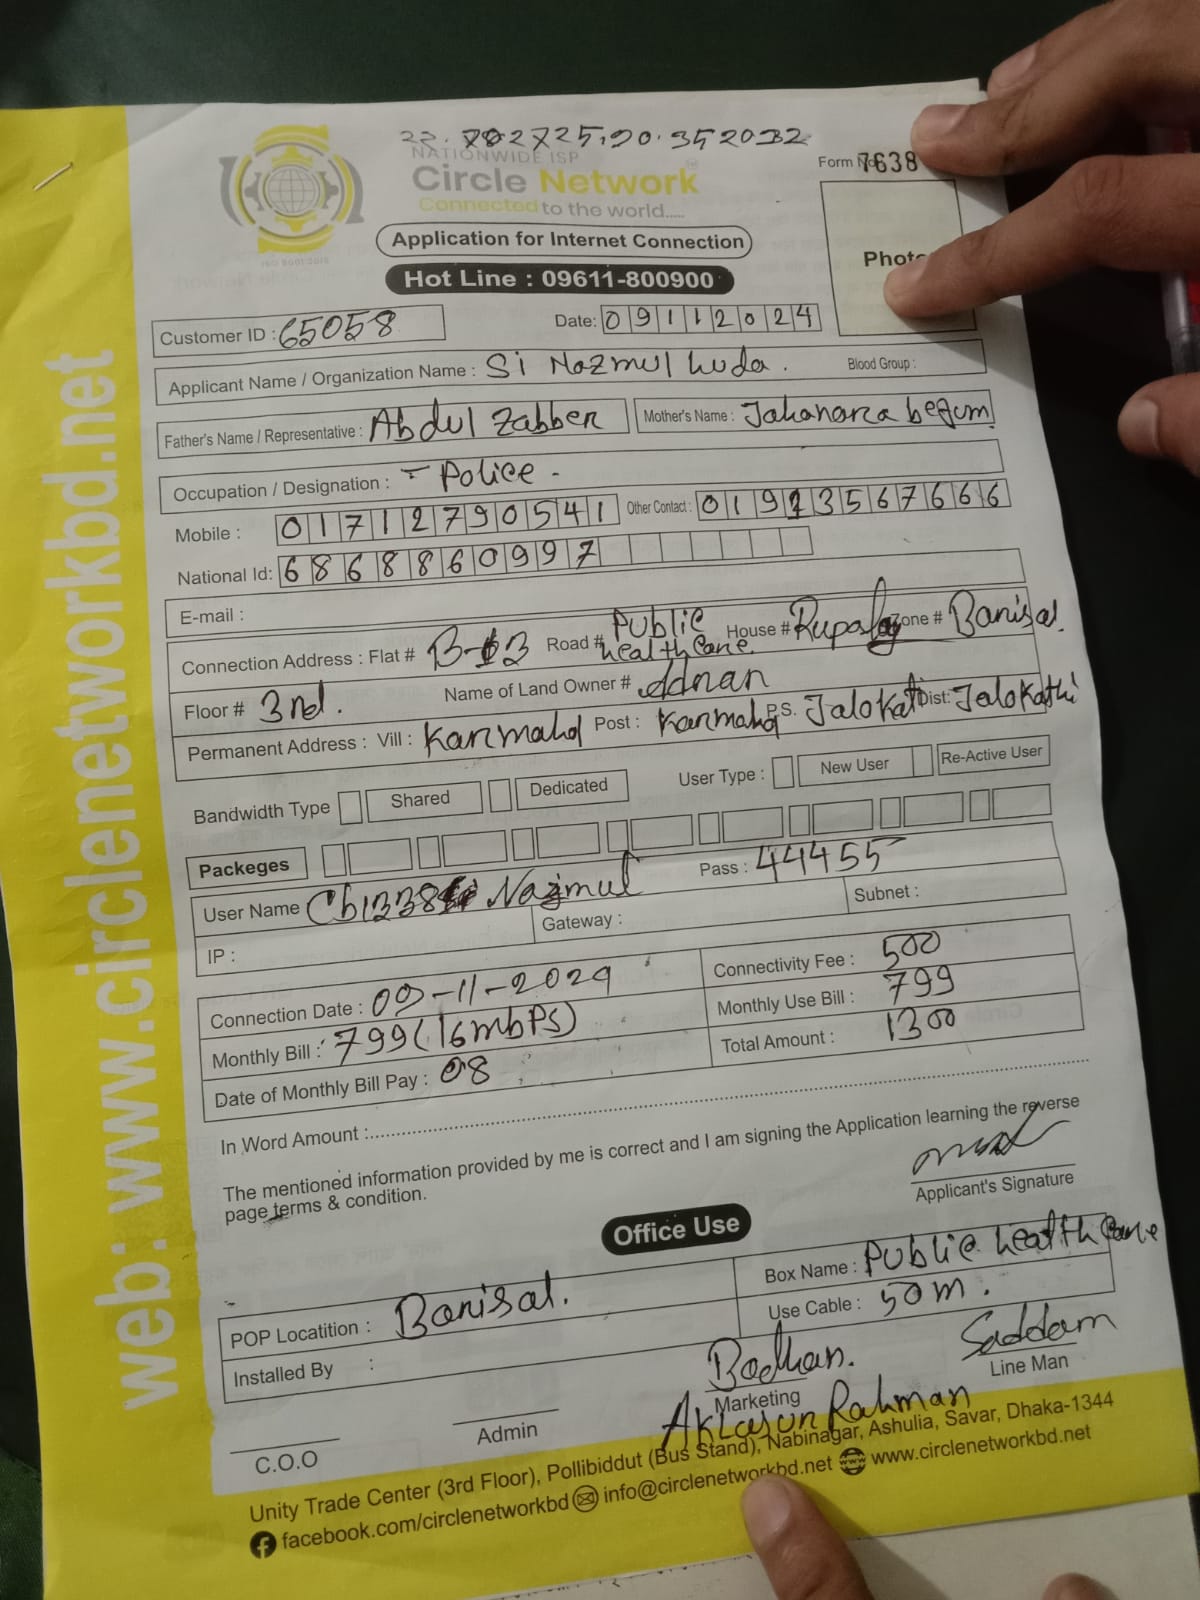 22.702725,90.352032
NATIONWIDE ISP
Circle Network
Connected to the world.....
ISO 9001:2015
Form No 7638
Photo
Application for Internet Connection
Hot Line : 09611-800900
Customer ID : 65058
Date: 09112024
Applicant Name / Organization Name : Si Nazmul huda. Blood Group :
Father's Name / Representative : Abdul Zabber Mother's Name : Jahanara begum
Occupation / Designation : - Police -
Mobile : 01712790541 Other Contact : 01913567666
National Id: 6868860997
E-mail :
Connection Address : Flat # B- Road # Public healthcare House # Zone # Barisal
Floor # 3rd. Name of Land Owner # Adnan
Permanent Address : Vill : Post : P.S. Jalokati Dist: Jalokathi
Bandwidth Type Shared Dedicated User Type : New User Re-Active User
Packeges
User Name Nazmul Pass : 44455
IP : Gateway : Subnet :
Connection Date : 09-11-2024 Connectivity Fee : 500
Monthly Bill : 799(16mbps) Monthly Use Bill : 799
Date of Monthly Bill Pay : 08 Total Amount : 1300
In Word Amount :
The mentioned information provided by me is correct and I am signing the Application learning the reverse
page terms & condition.
Applicant's Signature
Office Use
POP Locatition : Barisal. Box Name : Public healthcare
Installed By : Use Cable : 50m.
Bodhan. Saddam
Marketing Line Man
Rahman
C.O.O Admin
Unity Trade Center (3rd Floor), Pollibiddut (Bus Stand), Nabinagar, Ashulia, Savar, Dhaka-1344
facebook.com/circlenetworkbd info@circlenetworkbd.net www.circlenetworkbd.net
web: www.circlenetworkbd.net